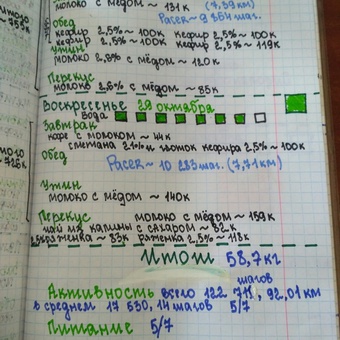 молоко с мёдом ~ 131к (7,39км)
обед Pacer ~ 9 854 шаг.
кефир 2,5% ~ 100к кефир 2,5% ~ 100к
кефир 2,5% ~ 100к кефир 2,5% ~ 119к
ужин
молоко 2,8% с мёдом ~ 120к
Перекус
молоко 2,6% с мёдом ~ 85к
Воскресенье 29 октября
Вода
Завтрак
кофе с молоком ~ 44к
сметана 21% и глоток кефира 2,5% ~ 100к
обед
Pacer ~ 10 283 шаг. (7,71км)
Ужин
молоко с мёдом ~ 140к
Перекус молоко с мёдом ~ 159к
чай из калины с сахаром ~ 82к
ряженка ~ 83к ряженка 2,5% ~ 118к
Итог 58,7кг
Активность всего 122 711 шагов, 92,01 км
в среднем 17 530,14 шагов 5/7
Питание 5/7